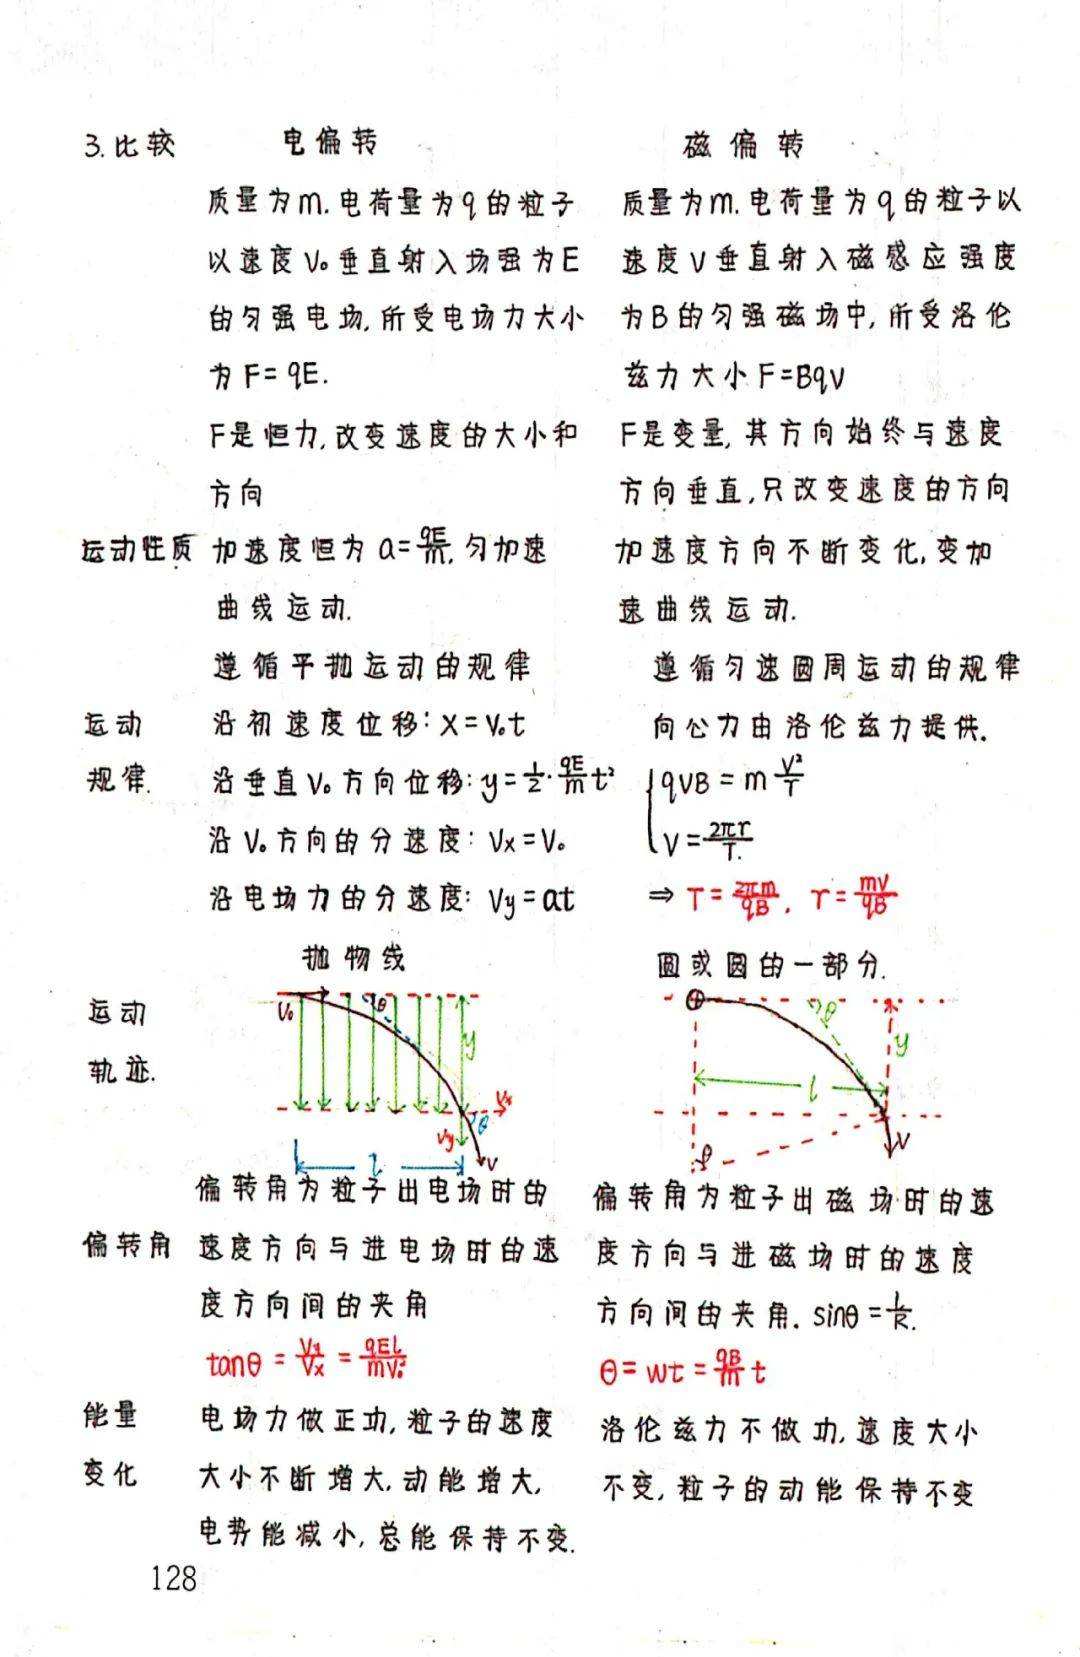 3.比较 电偏转 磁偏转
质量为m.电荷量为q的粒子 质量为m.电荷量为q的粒子以
以速度V₀垂直射入场强为E 速度V垂直射入磁感应强度
的匀强电场,所受电场力大小 为B的匀强磁场中,所受洛伦
为F=qE. 兹力大小F=BqV
F是恒力,改变速度的大小和 F是变量,其方向始终与速度
方向 方向垂直,只改变速度的方向
运动性质 加速度恒为a=qE/m,匀加速 加速度方向不断变化,变加
曲线运动. 速曲线运动.
遵循平抛运动的规律 遵循匀速圆周运动的规律
运动 沿初速度位移:X=V₀t 向心力由洛伦兹力提供.
规律. 沿垂直V₀方向位移:y=1/2·qE/m t² qVB=m V²/r
沿V₀方向的分速度:Vx=V₀ V=2πr/T.
沿电场力的分速度:Vy=at ⇒T=2πm/qB, r=mV/qB
抛物线 圆或圆的一部分.
运动
轨迹.
V₀ θ y Vx Vy θ V l
θ y l θ V
偏转角为粒子出电场时的 偏转角为粒子出磁场时的速
偏转角 速度方向与进电场时的速 度方向与进磁场时的速度
度方向间的夹角 方向间的夹角. sinθ=L/R.
tanθ=Vy/Vx=qEL/mV₀² θ=wt=qB/m t
能量 电场力做正功,粒子的速度 洛伦兹力不做功,速度大小
变化 大小不断增大,动能增大, 不变,粒子的动能保持不变
电势能减小,总能保持不变.
128